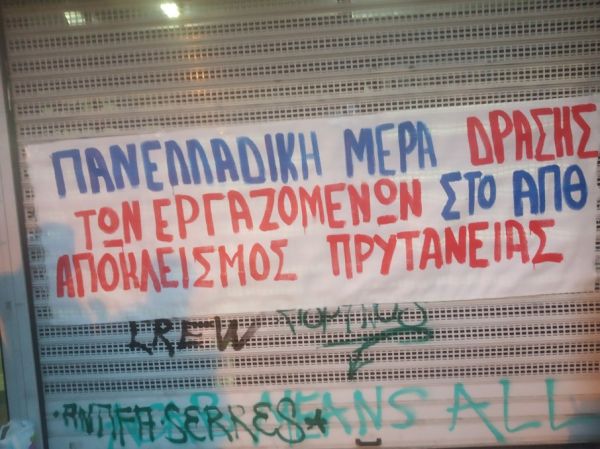 ΠΑΝΕΛΛΑΔΙΚΗ ΜΕΡΑ ΔΡΑΣΗΣ
ΤΩΝ ΕΡΓΑΖΟΜΕΝΩΝ ΣΤΟ ΑΠΘ
ΑΠΟΚΛΕΙΣΜΟΣ ΠΡΥΤΑΝΕΙΑΣ
CREW
MEANS ALL
ANTIFA SERRES*